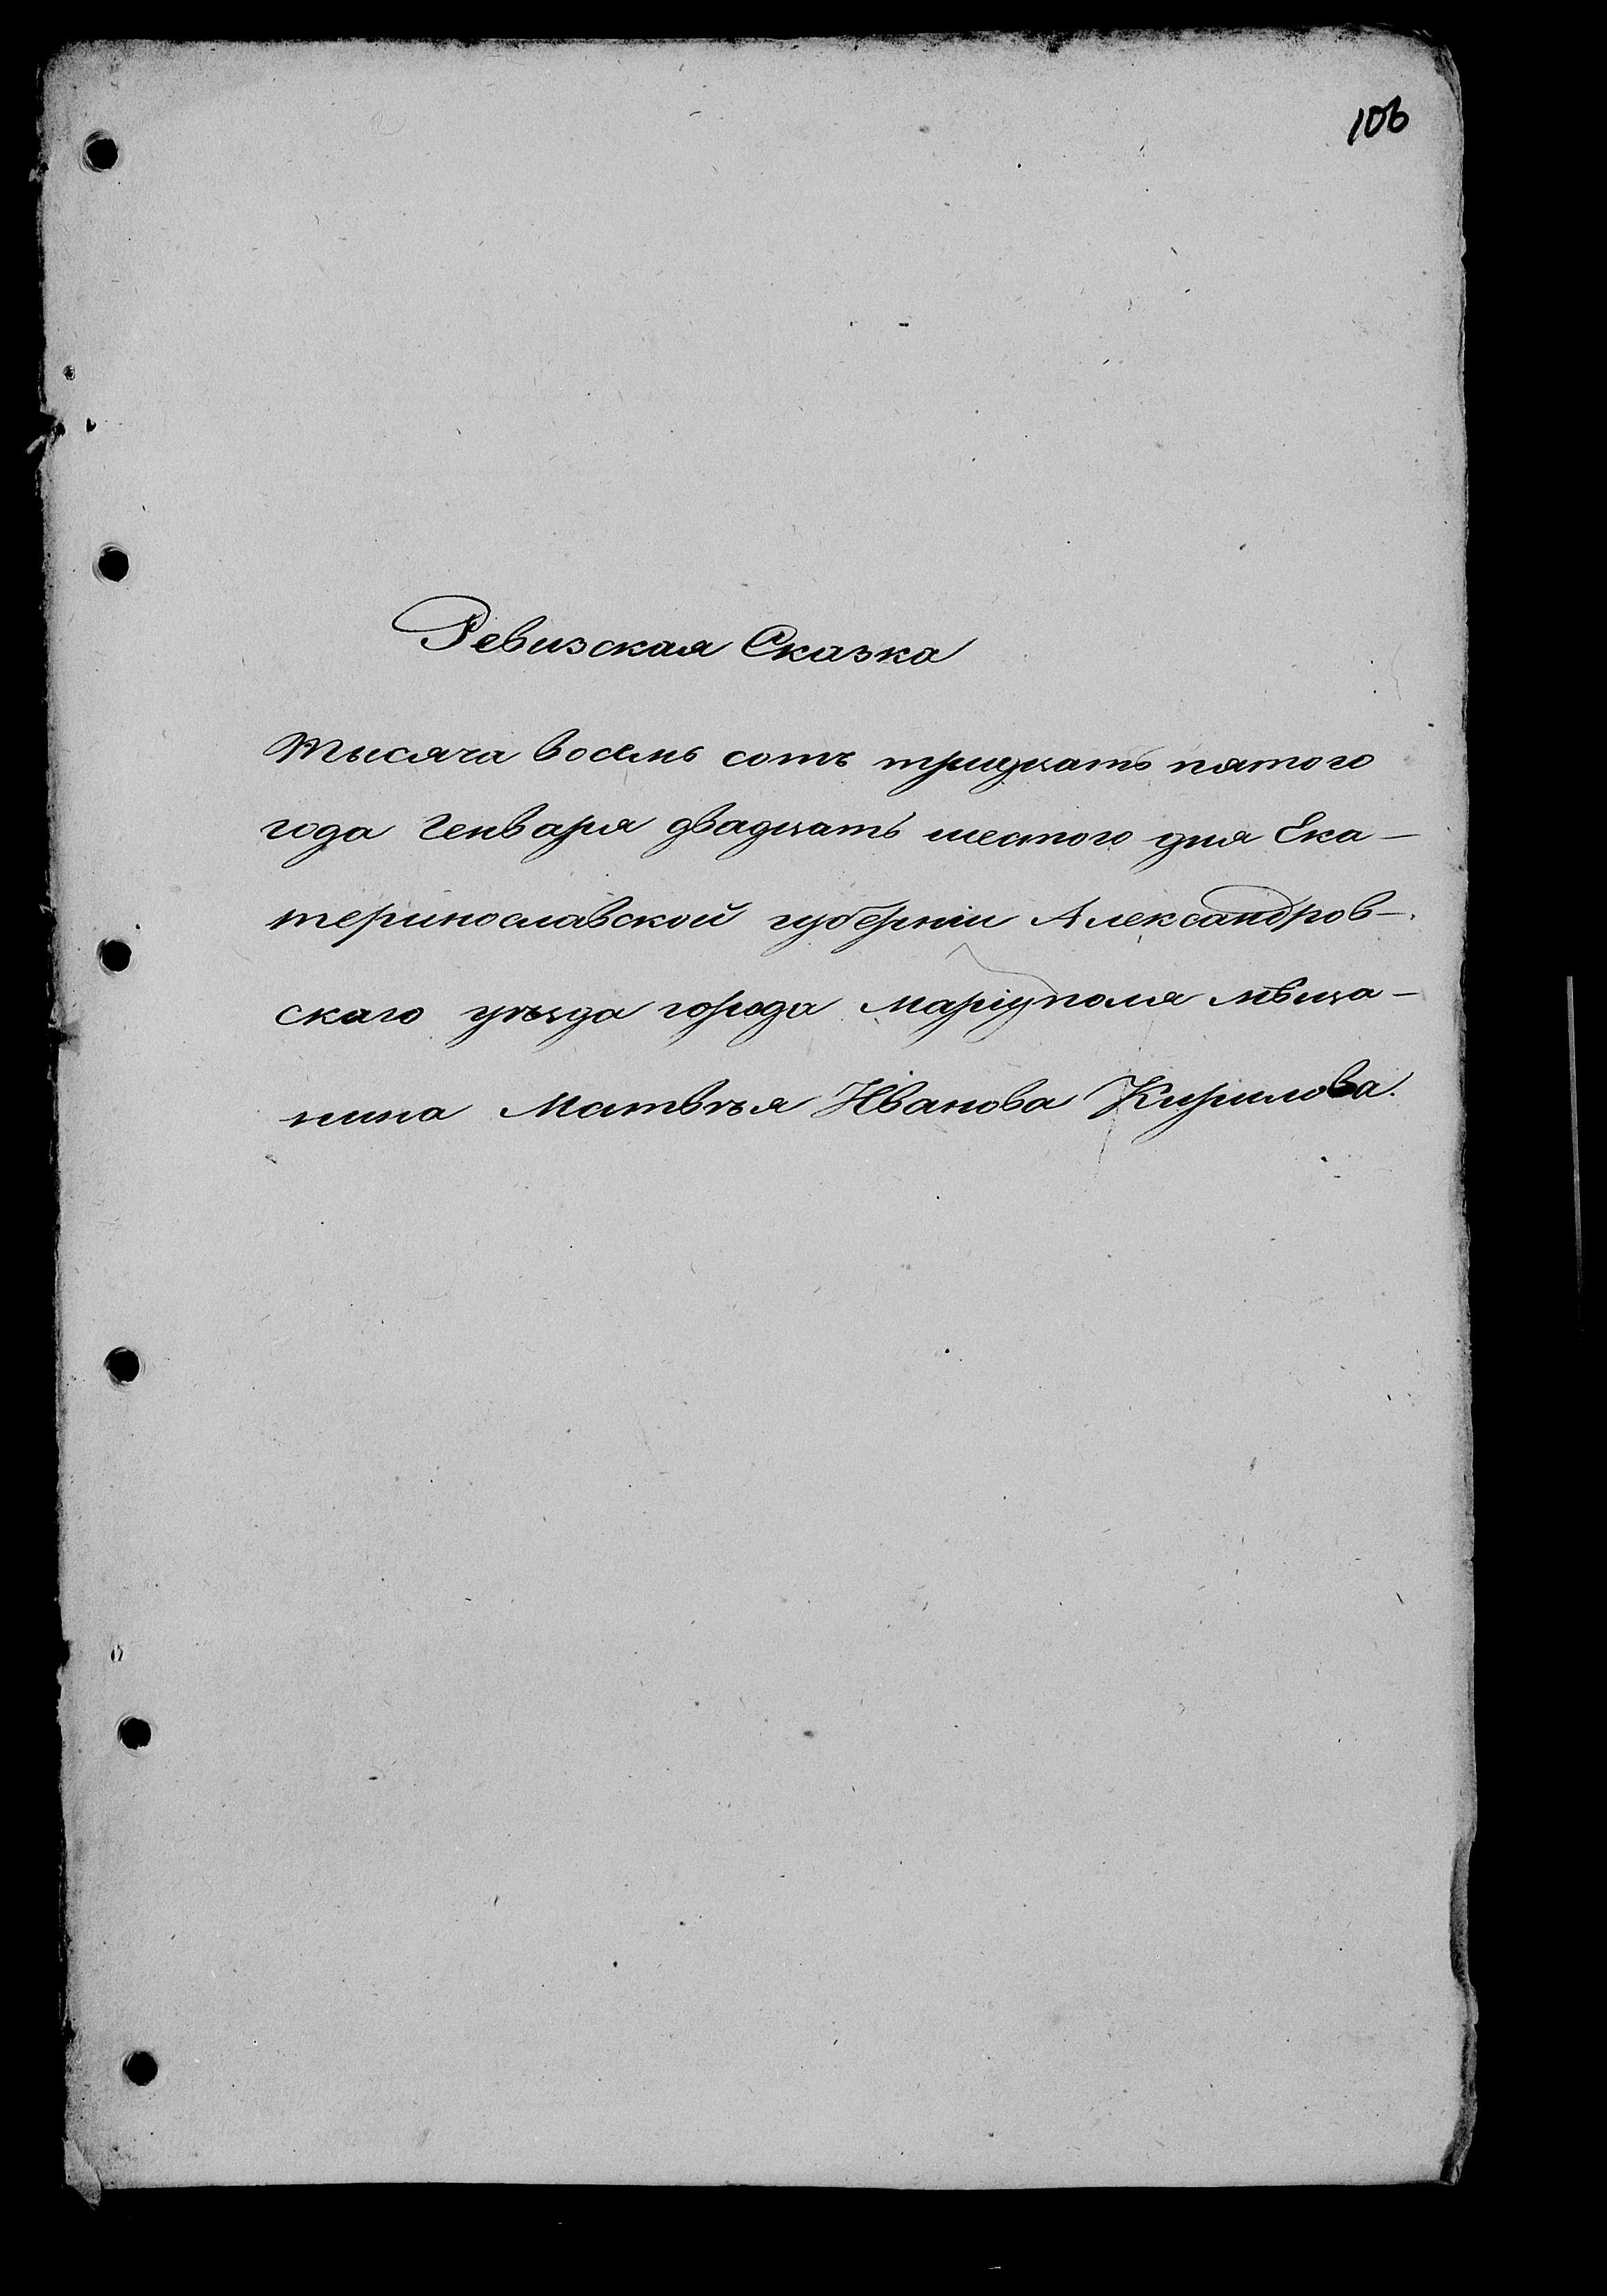 106
Ревизская Сказка
Тысяча восемь сотъ тридцать пятого
года Генваря двадцать шестого дня Ека-
теринославской губерніи Александров-
скаго уѣзда города Маріуполя мѣща-
нина Матвѣя Иванова Кирилова.